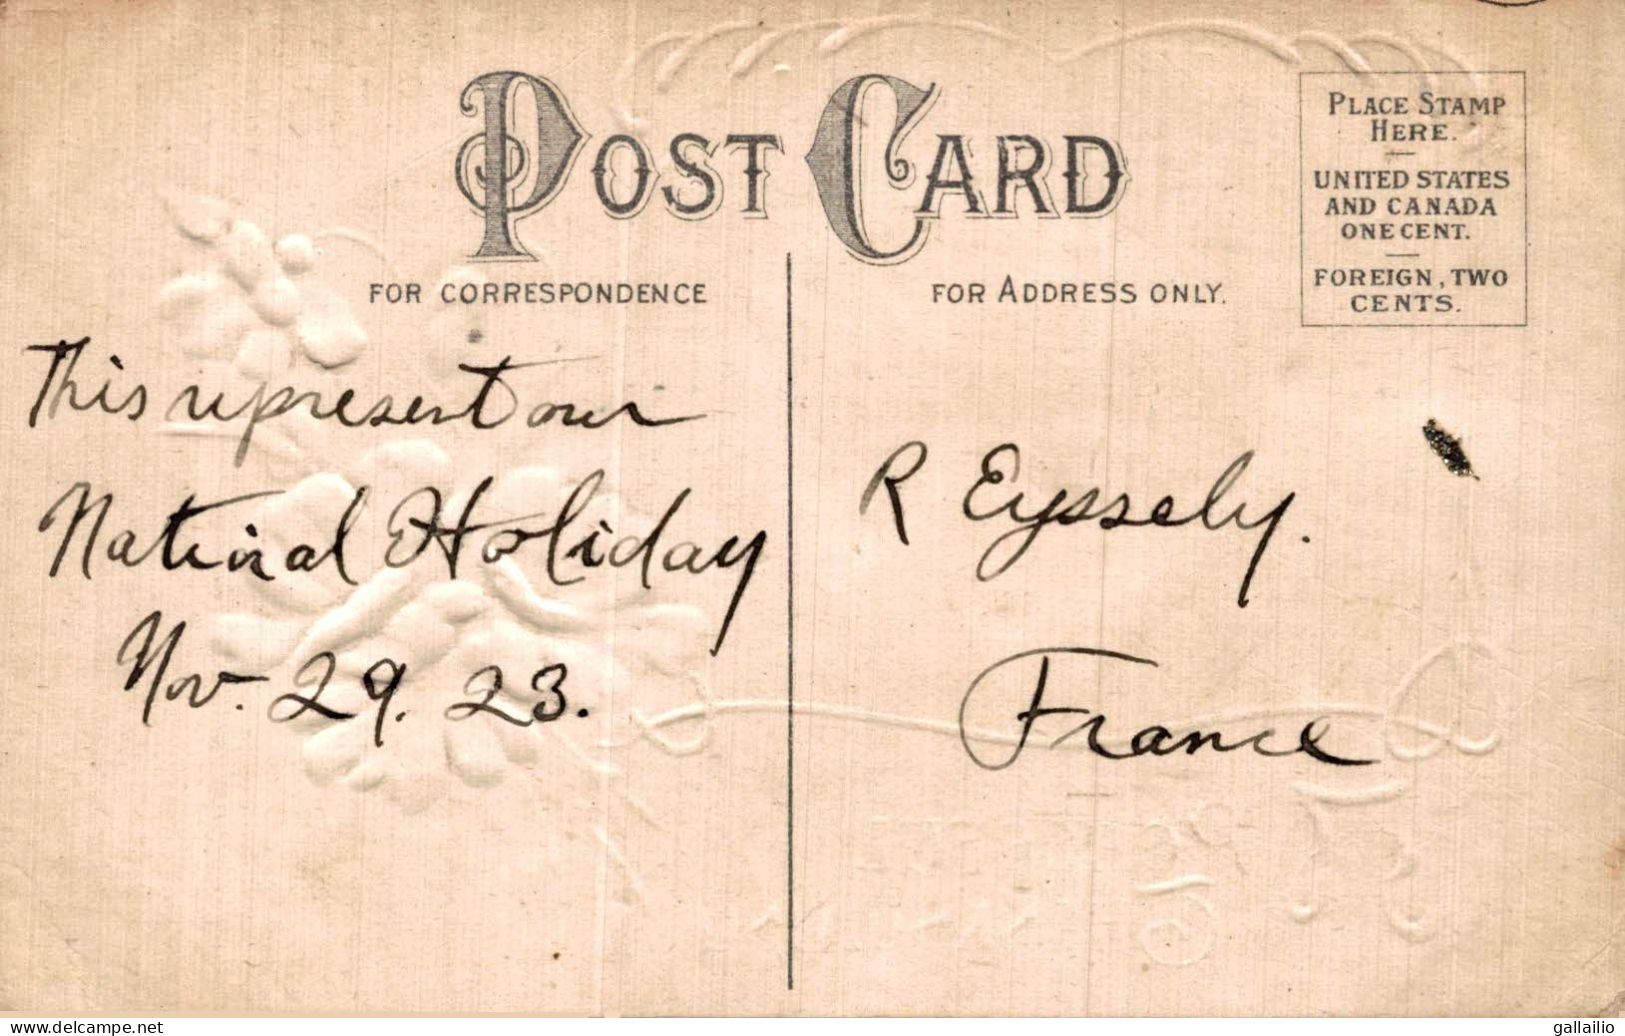 POST CARD
FOR CORRESPONDENCE
FOR ADDRESS ONLY.
PLACE STAMP
HERE.
UNITED STATES
AND CANADA
ONE CENT.
FOREIGN, TWO
CENTS.
This represent our
National Holiday
Nov. 29. 23.
R Eyssely.
France
www.delcampe.net
gallailio